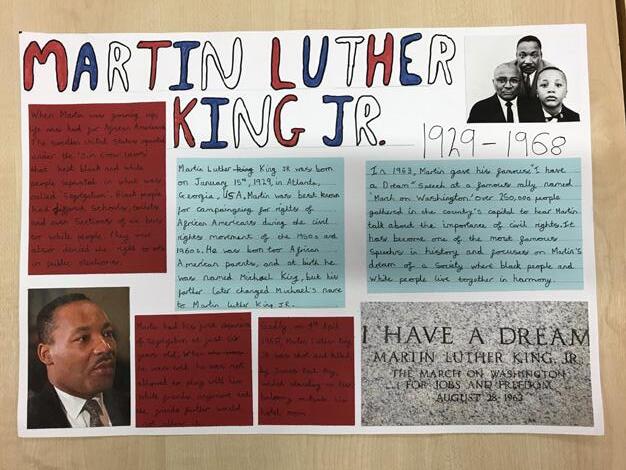 MARTIN LUTHER
KING JR.
1929-1968
When Martin was growing up,
life was hard for African Americans.
The Southern United States operated
under the 'Jim Crow laws'
that kept black and white
people separated in what was
called 'Segregation'. Black people
had different Schools, toilets
and even Sections of
for white people. They were
also denied the right to vote
in public elections.
Martin Luther King JR was born
on January 15th, 1929, in Atlanta,
Georgia, USA. Martin was best known
for campaigning for rights of
African Americans during the civil
rights movement of the 1950s and
1960s. He was born too African
American parents, and at birth he
was named Michael King, but his
father later changed Michael's name
to Martin Luther King JR.
In 1963, Martin gave his famous "I have
a Dream" Speech at a famous rally named
'March on Washington'. Over 250,000 people
gathered in the country's capital to hear Martin
talk about the importance of civil rights. It
has become one of the most famous
Speechs in history and focuses on Martin's
dream of a Society where black people and
white people live together in harmony.
Martin had his first experience
of segregation at just six
years old. When
he was told he was not
allowed to play with him
white friends anymore
the friends father would
not allow it.
Sadly, on 4th April
1968, Martin Luther King
JR was shot and killed
by James Earl Ray,
whilst standing on his
balcony outside his
hotel room.
I HAVE A DREAM
MARTIN LUTHER KING, JR.
THE MARCH ON WASHINGTON
FOR JOBS AND FREEDOM
AUGUST 28, 1963